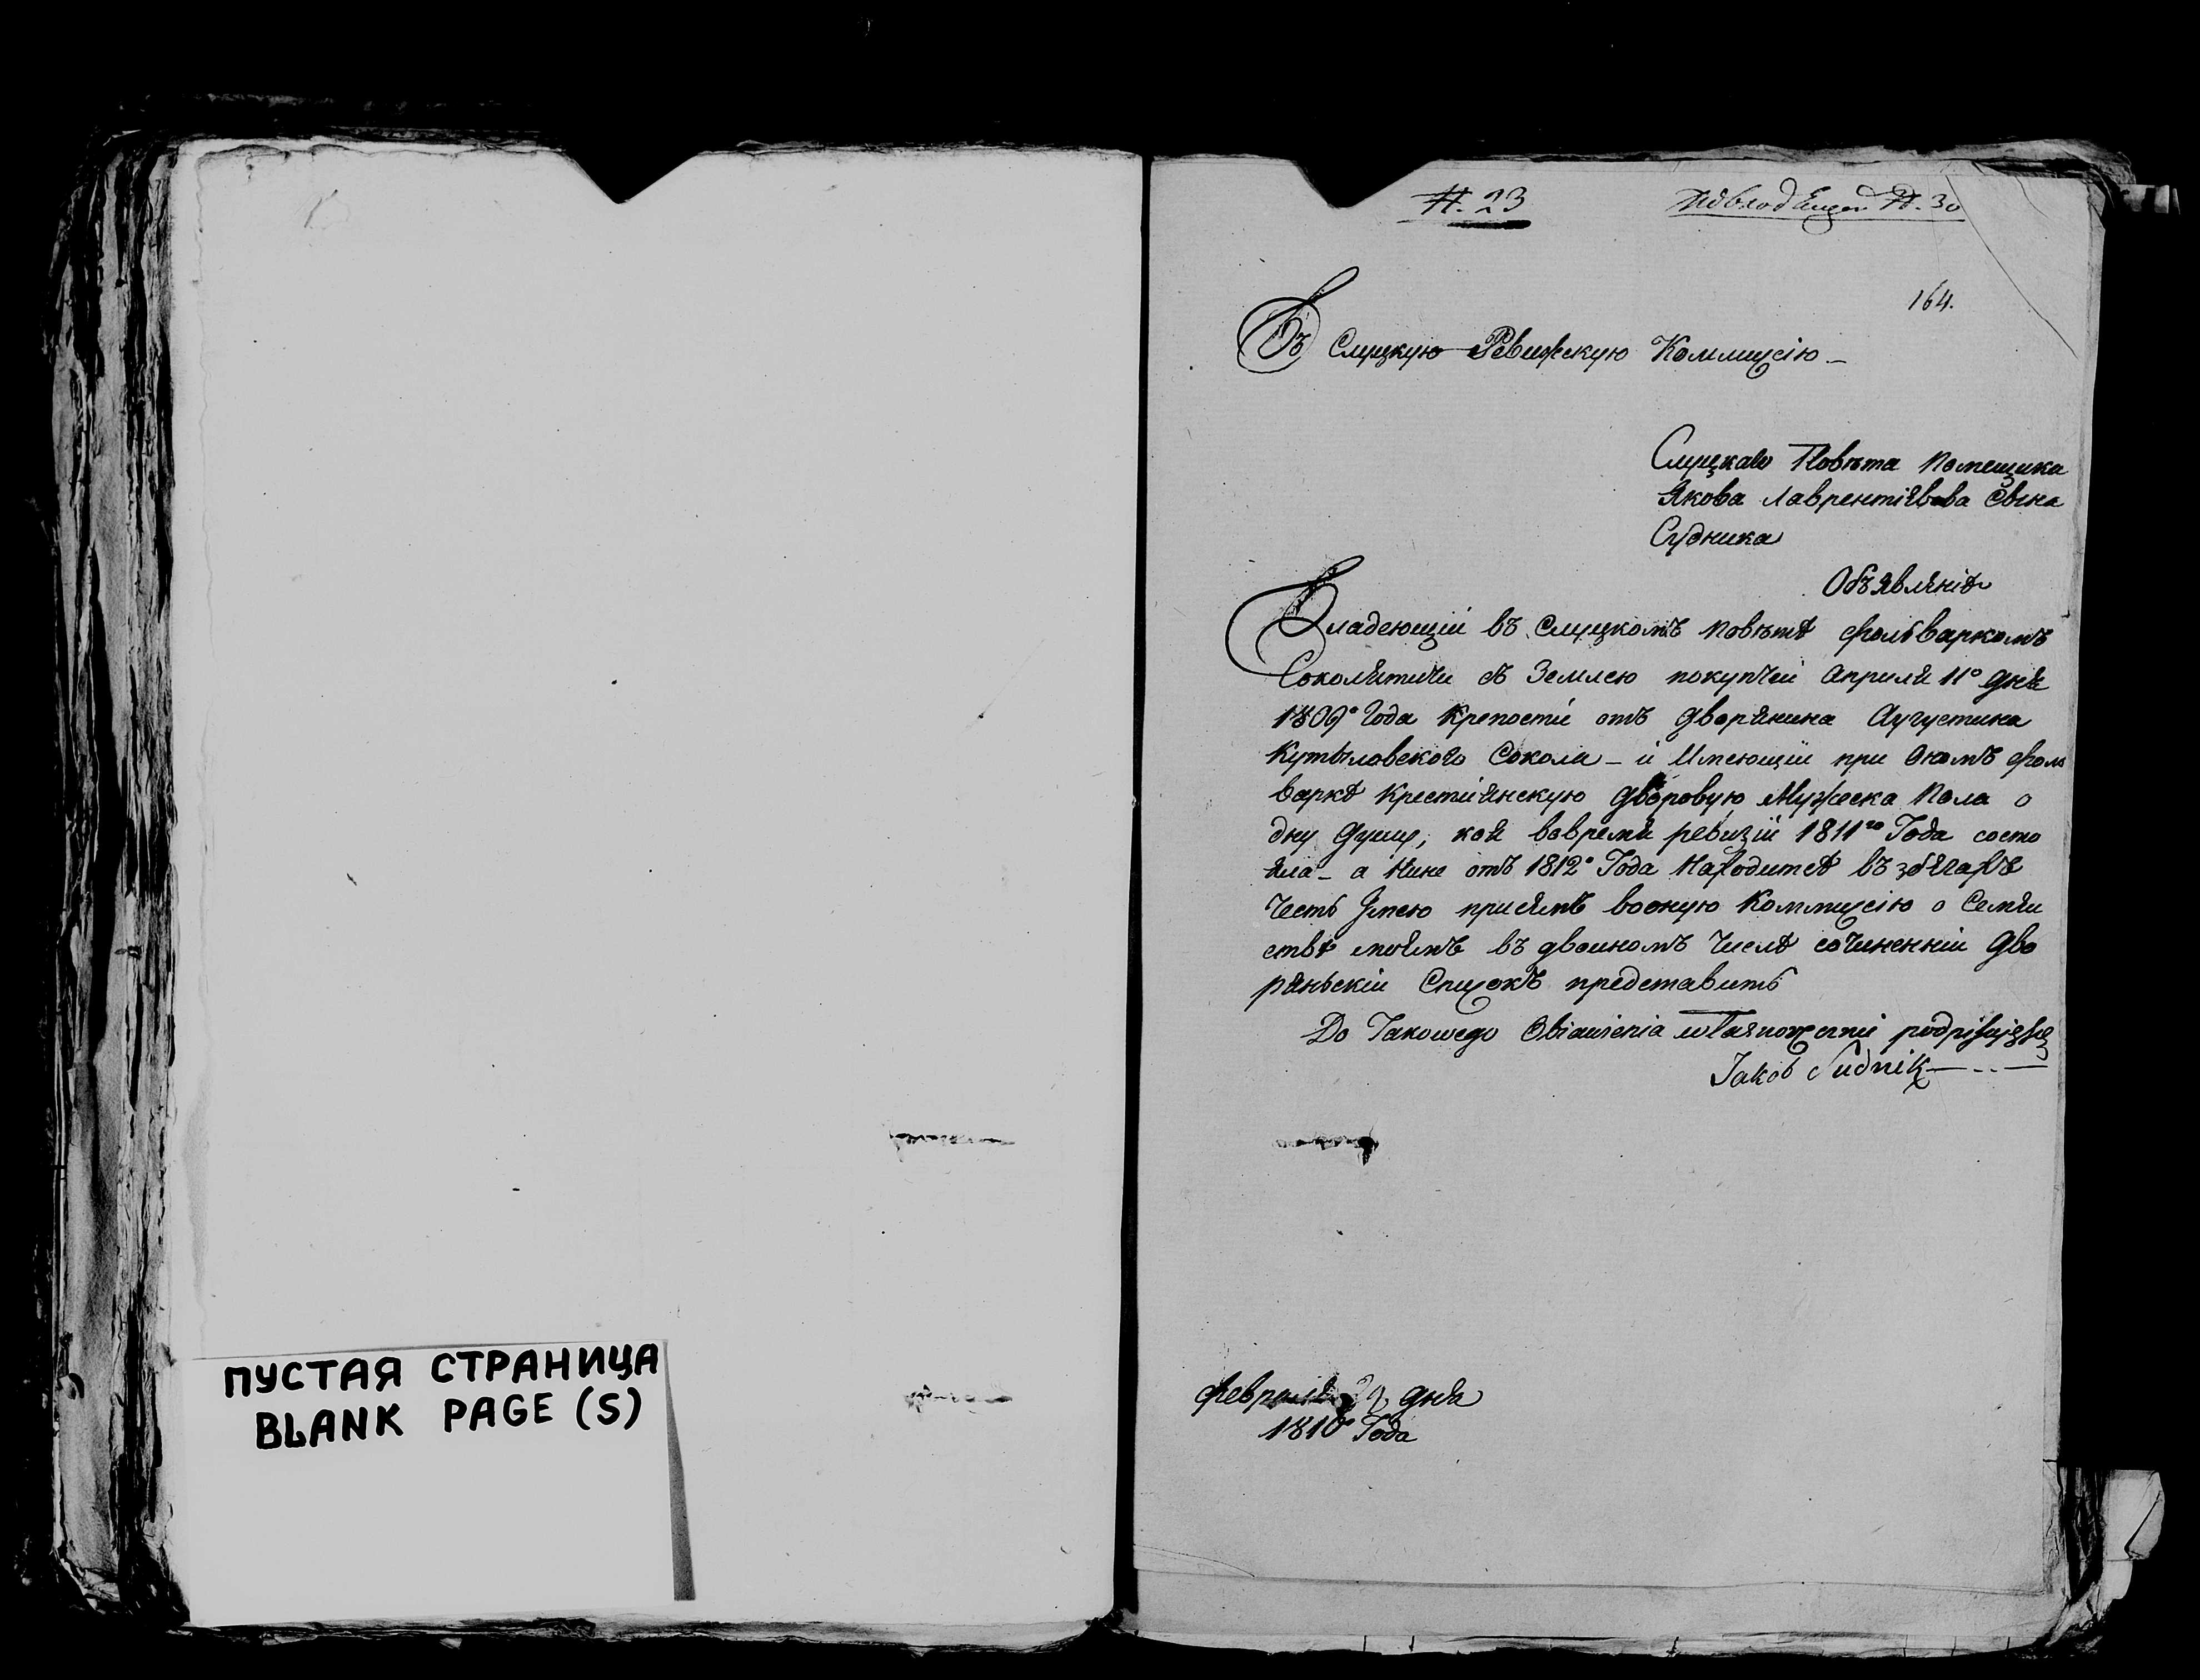 ПУСТАЯ СТРАНИЦА
BLANK PAGE (S)
N. 23
N. 30
164.
Въ Слуцкую Ревижскую Коммисію
Слуцкаго Повѣта Помещика
Якова Лаврентіявова Сына
Судника
Объявлѣніе
Владеющій въ Слуцкомъ Повѣтѣ фольваркомъ
Соколятичи съ Землею покупчей Априля 11º дня
1809º Года Крепости отъ дворянина Аугустина
Кутыловского Сокола - и Имеющій при ономъ фоль
варкѣ Крестиянскую дворовую Мужеска Пола о
дну душу, коя вовремя ревизіи 1811го Года состо
яла - а Нине отъ 1812º Года Находитсѣ въ збегахъ
Честь Имею присемъ вооную Коммисію о Семяи
ствѣ моемъ въ двоиномъ Числѣ сочиненнии Дво
ряньскіи Списокъ представить
Do Takowego Obiawienia własnoręcznie podpisuję się
Jakób Sudnik
Февраля дня
181 Года